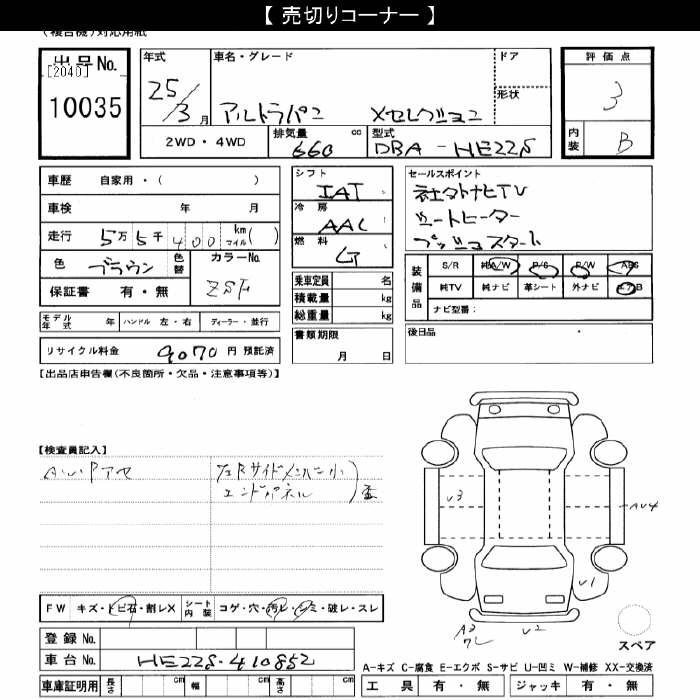 【 売切りコーナー 】
(複合機)対応用紙
出品No.
[2040]
10035
年式
25/3月
車名・グレード
アルトラパン Xセレクション
ドア
形状
評価点
3
内装
B
2WD・4WD
排気量
cc
660
型式
DBA-HE22S
車歴 自家用・( )
車検 年 月
走行 5万5千400 km マイル( )
色 ブラウン 色替 カラーNo.
ZSF
保証書 有・無
モデル年式 年 ハンドル 左・右 ディーラー・並行
リサイクル料金 9070 円 預託済
シフト
IAT
冷房
AAC
燃料
G
乗車定員 名
積載量 kg
総重量 kg
書類期限
月 日
セールスポイント
社外ナビTV
シートヒーター
プッシュスタート
装備品
S/R 純A/W P/S P/W ABS
純TV 純ナビ 革シート 外ナビ エアB
ナビ型番:
後日品
【出品店申告欄(不良箇所・欠品・注意事項等)】
【検査員記入】
エンドパネル
FW キズ・トビ石・割レX シート内装 コゲ・穴・汚レ・シミ・破レ・スレ
登録No.
車台No. HE22S-410852
車庫証明用 長さ cm 幅 cm 高さ cm
U3
AU4
U1
U2
A2
スペア
A-キズ C-腐食 E-エクボ S-サビ U-凹ミ W-補修 XX-交換済
工具 有・無 ジャッキ 有・無